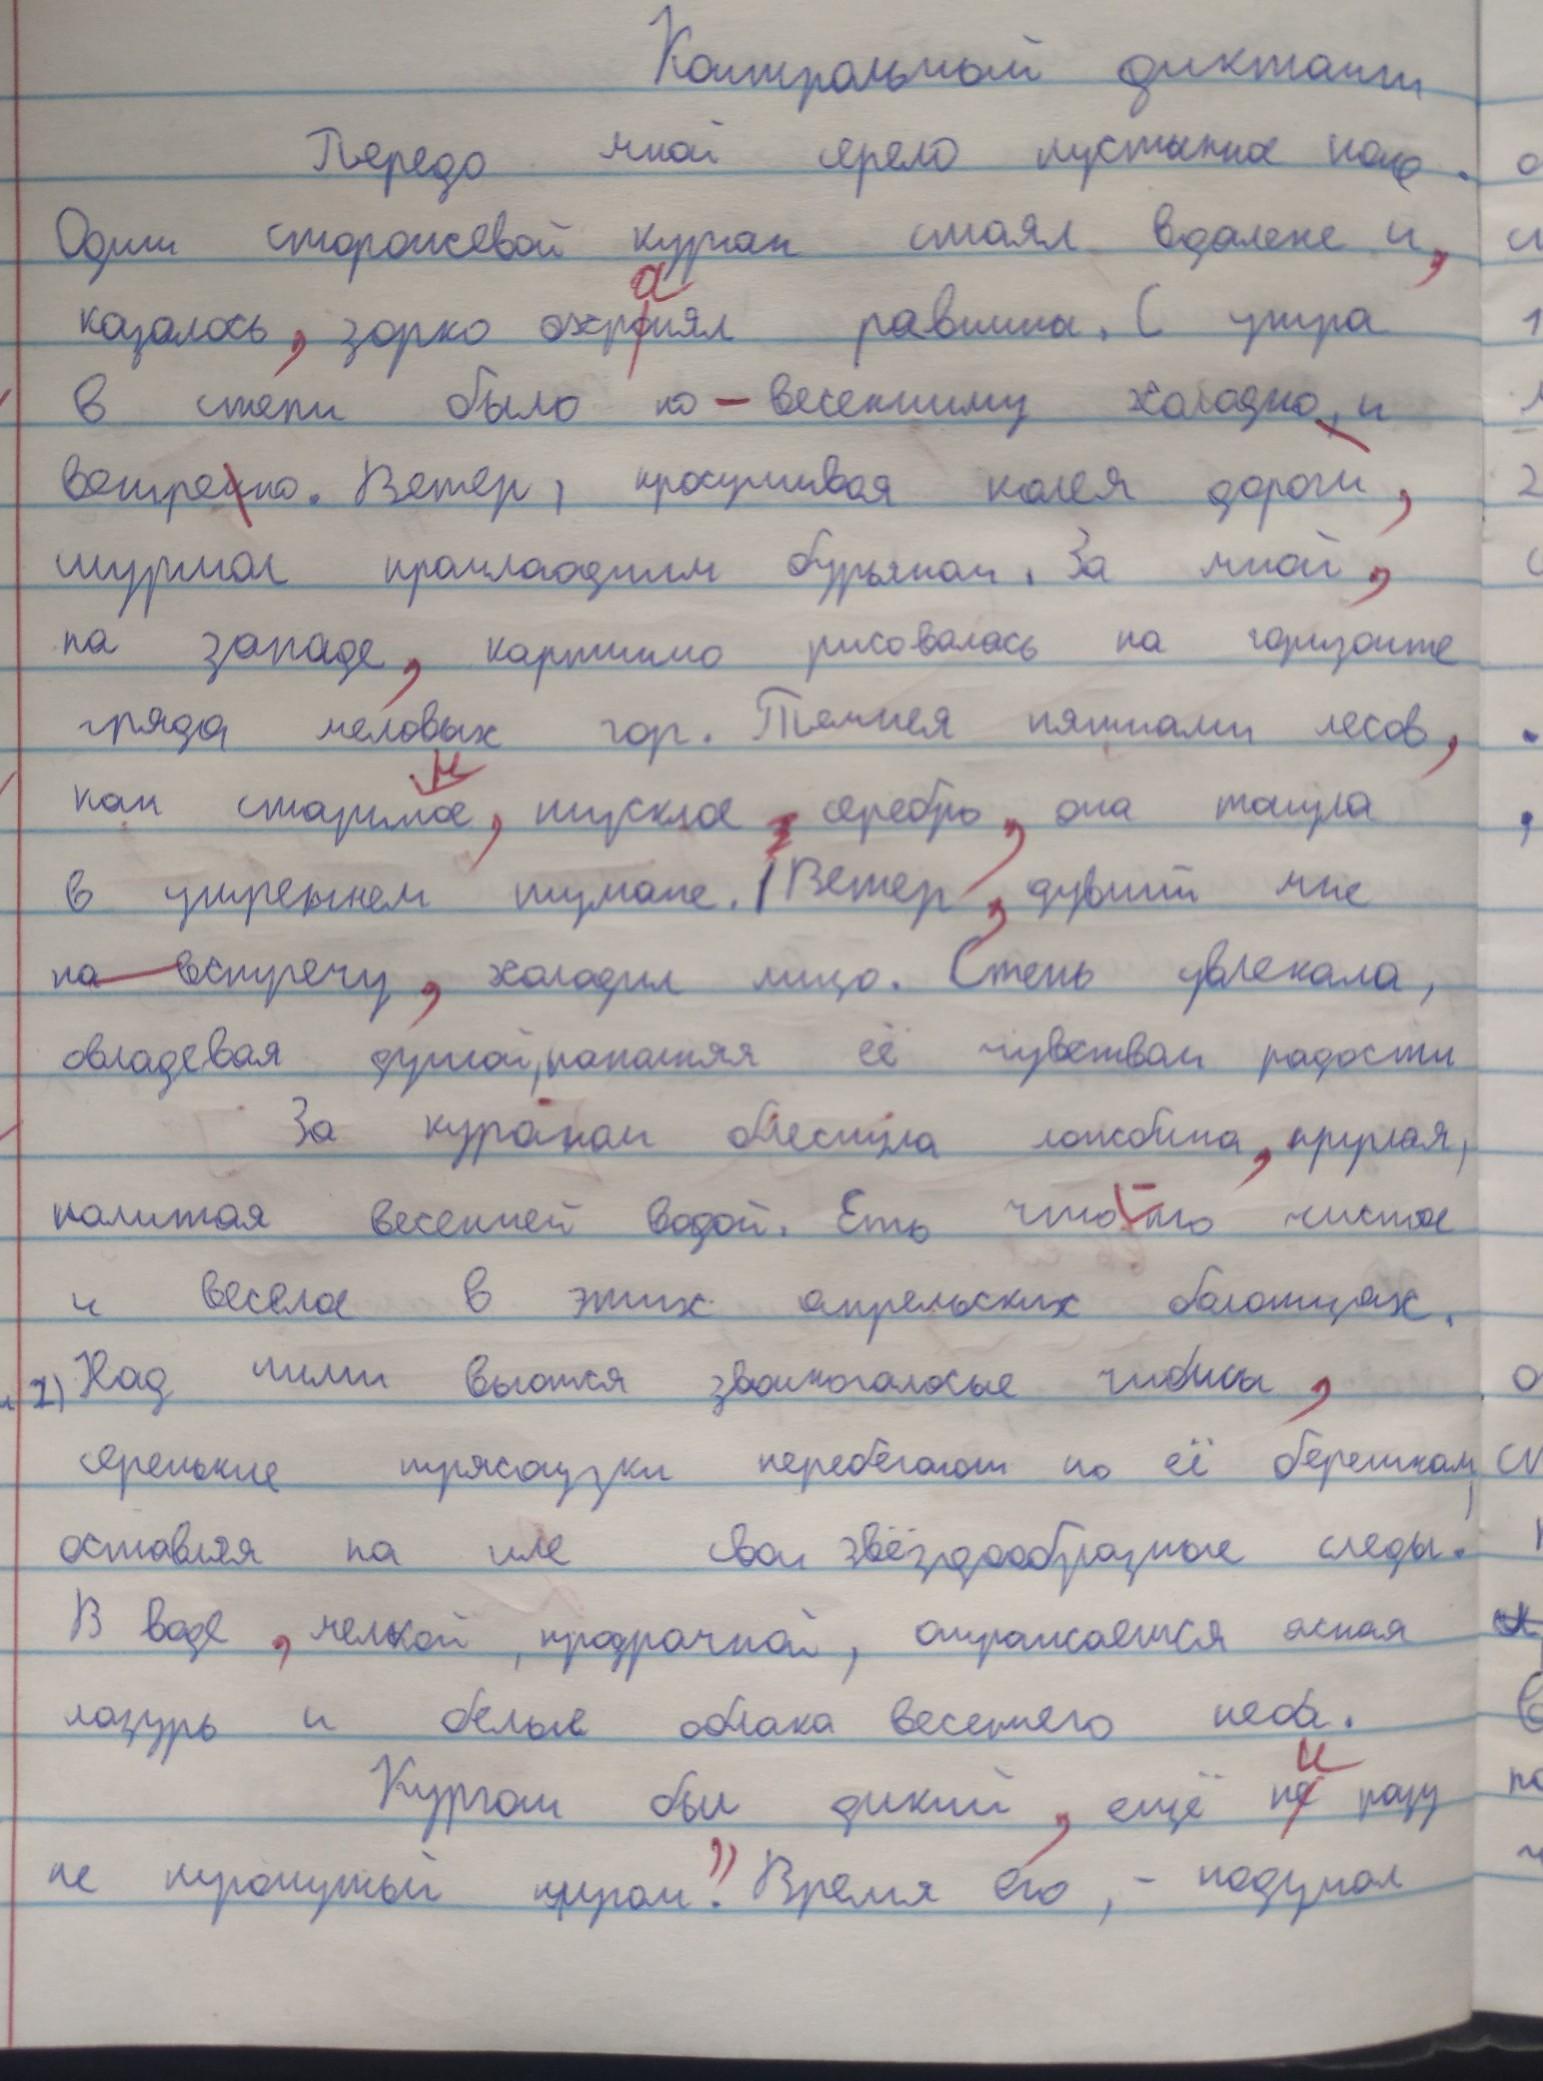 Контрольный диктант
Передо мной серело пустынное поле.
Один сторожевой курган стоял вдалеке и,
казалось, зорко охранял равнины. С утра
в степи было по-весеннему холодно, и
ветренно. Ветер, просушивая колеи дороги,
шуршал прошлогодним бурьяном. За мной,
на западе, картинно рисовалась на горизонте
гряда меловых гор. Темнея пятнами лесов,
как старинное, тусклое серебро, она тонула
в утреннем тумане. Ветер, дувший мне
на встречу, холодил лицо. Степь увлекала,
овладевая душой, наполняя её чувством радости
За курганом блеснула ложбина, круглая,
налитая весенней водой. Есть что-то чистое
и веселое в этих апрельских болотцах.
1) Над ними вьются звонкоголосые чибисы,
серенькие трясогузки перебегают по её бережкам,
оставляя на иле свои звёздообразные следы.
В воде, мелкой, прозрачной, отражается ясная
лазурь и белые облака весеннего неба.
Курган был дикий, ещё ни разу
не тронутый плугом. "Время его, - подумал